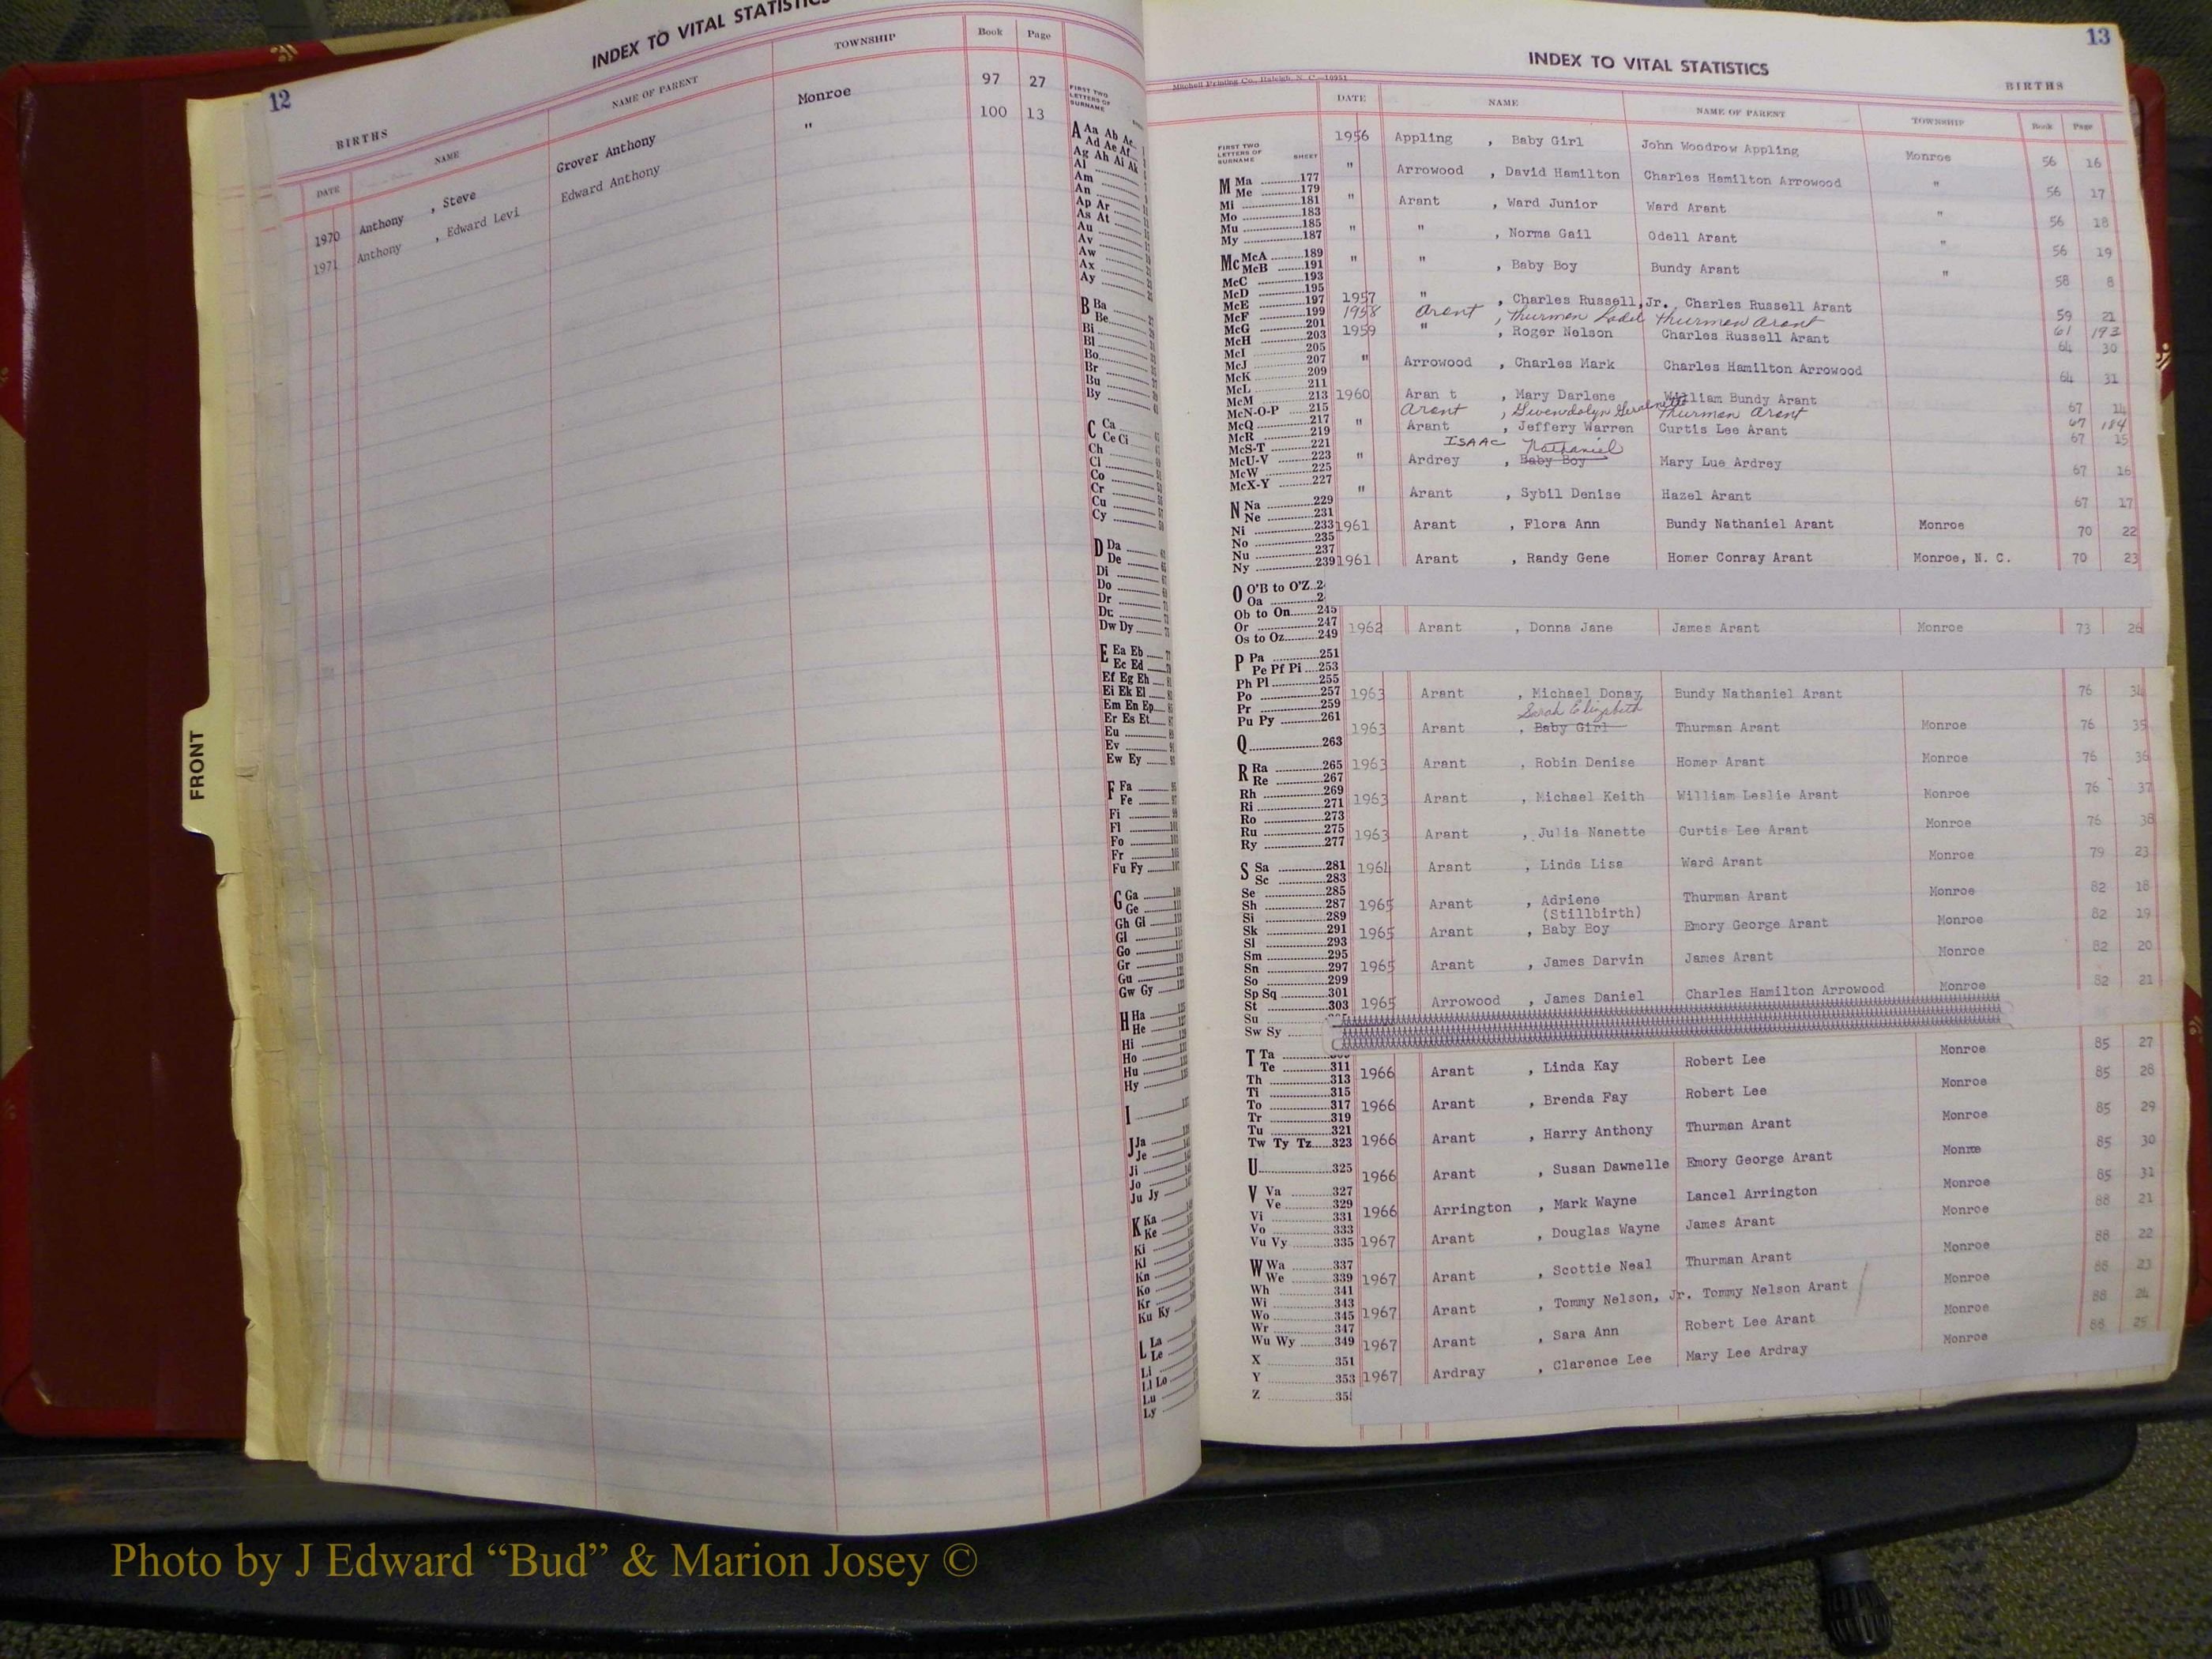 12
INDEX TO VITAL STATISTICS
BIRTHS
DATE NAME NAME OF PARENT TOWNSHIP Book Page
1970 Anthony , Steve Grover Anthony Monroe 97 27
1971 Anthony , Edward Levi Edward Anthony " 100 13
FRONT
FIRST TWO LETTERS OF SURNAME
A Aa Ab Ac
Ad Ae Af
Ag Ah Ai Ak
Al
Am
An
Ap Ar
As At
Au
Av
Aw
Ax
Ay
B Ba
Be
Bi
Bl
Bo
Br
Bu
By
C Ca
Ce Ci
Ch
Cl
Co
Cr
Cu
Cy
D Da
De
Di
Do
Dr
Du
Dw Dy
E Ea Eb
Ec Ed
Ef Eg Eh
Ei Ek El
Em En Ep
Er Es Et
Eu
Ev
Ew Ey
F Fa
Fe
Fi
Fl
Fo
Fr
Fu Fy
G Ga
Ge
Gh Gi
Gl
Go
Gr
Gu
Gw Gy
H Ha
He
Hi
Ho
Hu
Hy
I
J Ja
Je
Ji
Jo
Ju Jy
K Ka
Ke
Ki
Kl
Kn
Ko
Kr
Ku Ky
L La
Le
Li
Ll Lo
Lu
Ly
13
INDEX TO VITAL STATISTICS
Mitchell Printing Co., Raleigh, N. C.—10951
BIRTHS
DATE NAME NAME OF PARENT TOWNSHIP Book Page
FIRST TWO LETTERS OF SURNAME SHEET
M Ma 177
Me 179
Mi 181
Mo 183
Mu 185
My 187
Mc McA 189
McB 191
McC 193
McD 195
McE 197
McF 199
McG 201
McH 203
McI 205
McJ 207
McK 209
McL 211
McM 213
McN-O-P 215
McQ 217
McR 219
McS-T 221
McU-V 223
McW 225
McX-Y 227
N Na 229
Ne 231
Ni 233
No 235
Nu 237
Ny 239
O O'B to O'Z 2
Oa 2
Ob to On 245
Or 247
Os to Oz 249
P Pa 251
Pe Pf Pi 253
Ph Pl 255
Po 257
Pr 259
Pu Py 261
Q 263
R Ra 265
Re 267
Rh 269
Ri 271
Ro 273
Ru 275
Ry 277
S Sa 281
Sc 283
Se 285
Sh 287
Si 289
Sk 291
Sl 293
Sm 295
Sn 297
So 299
Sp Sq 301
St 303
Su
Sw Sy
T Ta
Te 311
Th 313
Ti 315
To 317
Tr 319
Tu 321
Tw Ty Tz 323
U 325
V Va 327
Ve 329
Vi 331
Vo 333
Vu Vy 335
W Wa 337
We 339
Wh 341
Wi 343
Wo 345
Wr 347
Wu Wy 349
X 351
Y 353
Z 35
1956 Appling , Baby Girl John Woodrow Appling Monroe 56 16
" Arrowood , David Hamilton Charles Hamilton Arrowood " 56 17
" Arant , Ward Junior Ward Arant " 56 18
" " , Norma Gail Odell Arant " 56 19
" " , Baby Boy Bundy Arant " 58 8
1957 " , Charles Russell, Jr. Charles Russell Arant 59 21
1958 Arant , Thurman Thurman Arant 61 193
1959 " , Roger Nelson Charles Russell Arant 64 30
" Arrowood , Charles Mark Charles Hamilton Arrowood 64 31
1960 Aran t , Mary Darlene William Bundy Arant 67 14
Arant , Gwendolyn Thurman Arant 67 184
" Arant , Jeffery Warren Curtis Lee Arant 67 15
ISAAC Nathaniel
" Ardrey , Baby Boy Mary Lue Ardrey 67 16
" Arant , Sybil Denise Hazel Arant 67 17
1961 Arant , Flora Ann Bundy Nathaniel Arant Monroe 70 22
1961 Arant , Randy Gene Homer Conray Arant Monroe, N. C. 70 23
1962 Arant , Donna Jane James Arant Monroe 73 26
1963 Arant , Michael Donay Bundy Nathaniel Arant 76 34
Sarah Elizabeth
1963 Arant , Baby Girl Thurman Arant Monroe 76 35
1963 Arant , Robin Denise Homer Arant Monroe 76 36
1963 Arant , Michael Keith William Leslie Arant Monroe 76 37
1963 Arant , Julia Nanette Curtis Lee Arant Monroe 76 38
1964 Arant , Linda Lisa Ward Arant Monroe 79 23
1965 Arant , Adriene Thurman Arant Monroe 82 18
(Stillbirth)
1965 Arant , Baby Boy Emory George Arant Monroe 82 19
1965 Arant , James Darvin James Arant Monroe 82 20
1965 Arrowood , James Daniel Charles Hamilton Arrowood Monroe 82 21
1966 Arant , Linda Kay Robert Lee Monroe 85 27
1966 Arant , Brenda Fay Robert Lee Monroe 85 28
1966 Arant , Harry Anthony Thurman Arant Monroe 85 29
1966 Arant , Susan Dawnelle Emory George Arant Monroe 85 30
1966 Arrington , Mark Wayne Lancel Arrington Monroe 85 31
1967 Arant , Douglas Wayne James Arant Monroe 88 21
1967 Arant , Scottie Neal Thurman Arant Monroe 88 22
1967 Arant , Tommy Nelson, Jr. Tommy Nelson Arant Monroe 88 23
1967 Arant , Sara Ann Robert Lee Arant Monroe 88 24
1967 Ardray , Clarence Lee Mary Lee Ardray Monroe 88 25
Photo by J Edward “Bud” & Marion Josey ©